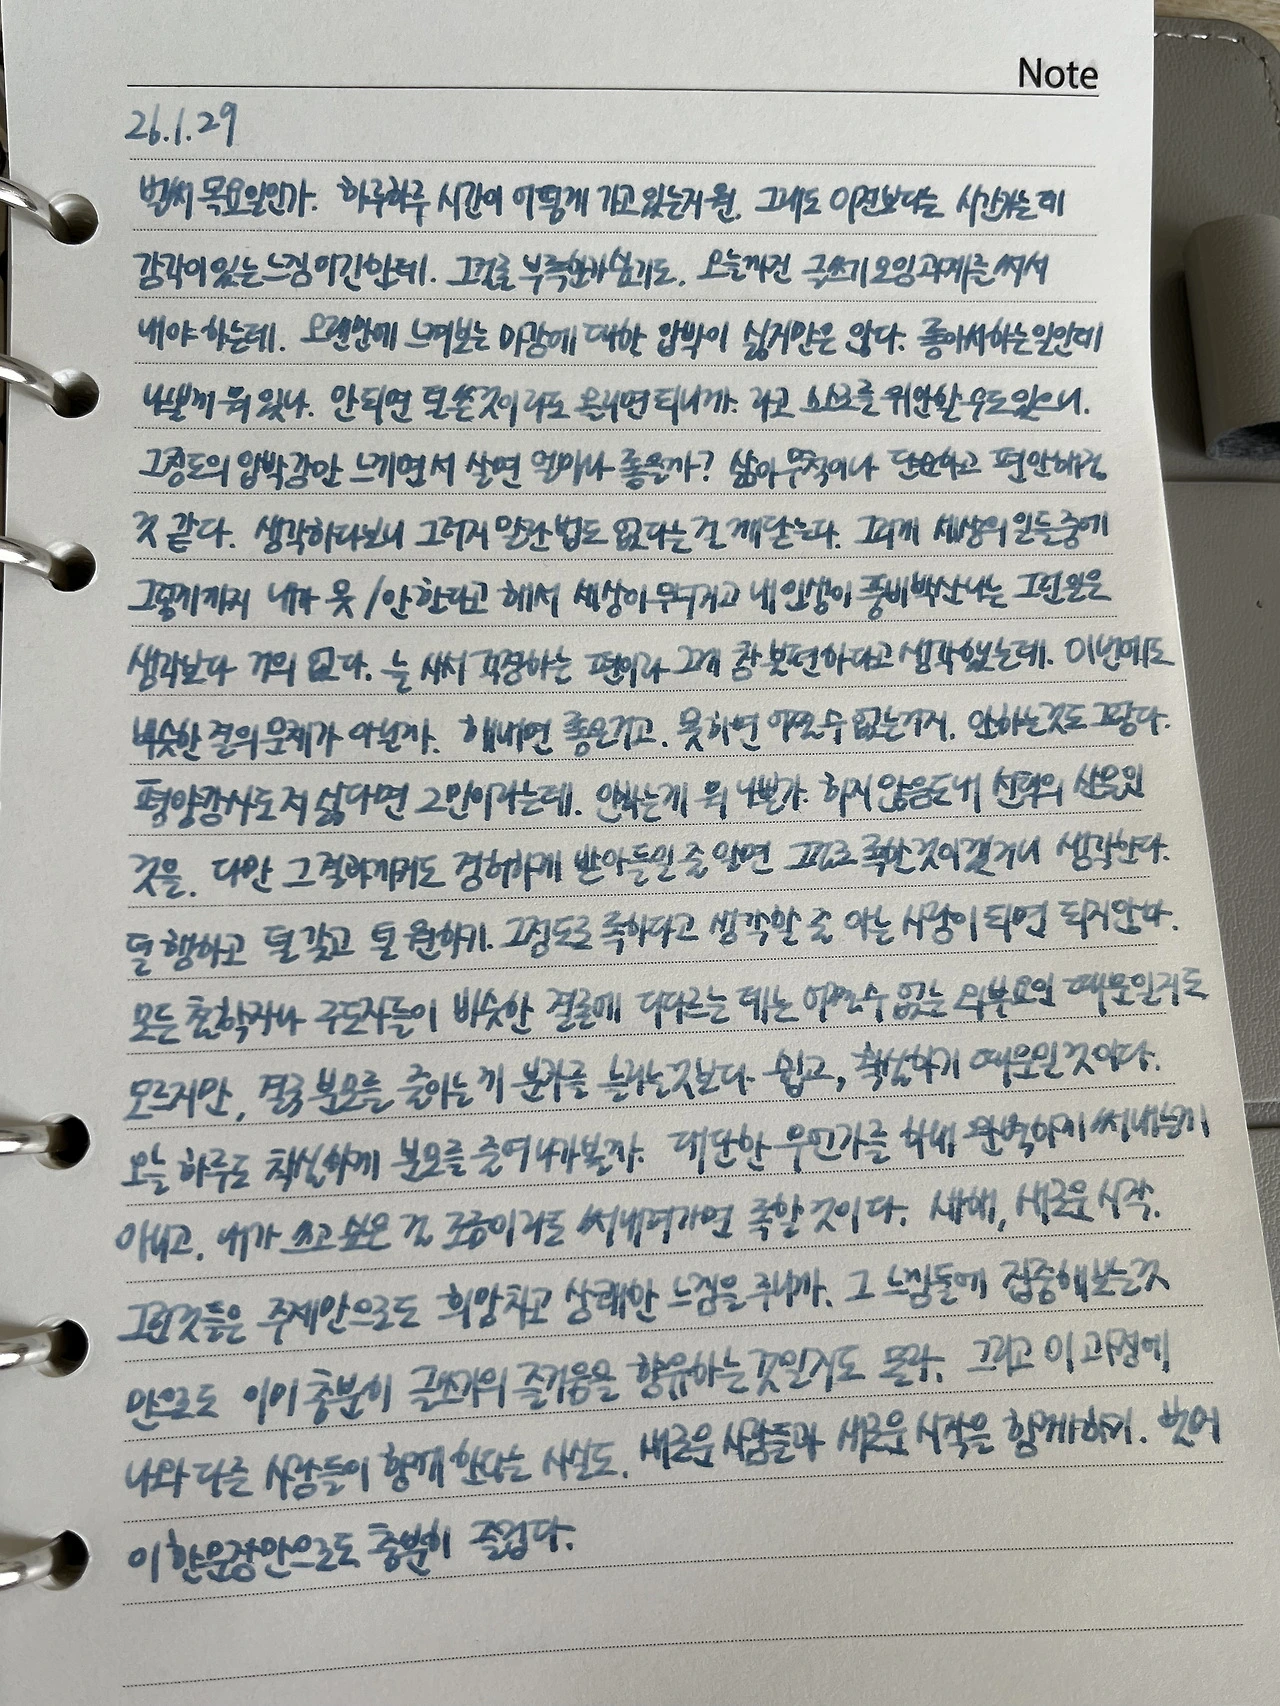 Note
26.1.29
벌써 목요일인가. 하루하루 시간이 어떻게 가고 있는지 원. 그래도 이전보다는 시간가는데
감각이 있는 느낌이긴한데. 그걸로 부족한가 싶기도. 오늘까진 글쓰기모임 과제를 써서
내야 하는데. 오랜만에 느껴보는 마감에 대한 압박이 싫지만은 않다. 좋아서하는일인데
나쁠게 뭐 있나. 안되면 덜 쓴것이라도 올리면 되니까. 라고 스스로를 위안할 수도있으니.
그정도의 압박감만 느끼면서 살면 얼마나 좋을까? 삶이 무척이나 단순하고 편안해질
것 같다. 생각하다보니 그러지 말란 법도 없다는 걸 깨닫는다. 그러게 세상의 일들중에
그렇게까지 내가 못/안한다고 해서 세상이 무너지고 내 인생이 풍비박산나는 그런일은
생각보다 거의 없다. 늘 사서 걱정하는 편이라 그게 참 불편하다고 생각했는데. 이번에도
비슷한 결의 문제가 아닐까. 해내면 좋은거고. 못하면 어쩔수 없는거지. 안하는것도 그렇다.
평양감사도 저 싫다면 그만이라는데. 안하는게 뭐 나쁜가. 하지 않음도 내 선택의 산물인
것을. 다만 그 결과까지도 겸허하게 받아들일 줄 알면 그걸로 족한 것이겠거니 생각한다.
덜 행하고 덜 갖고 덜 원하기. 그정도로 족하다고 생각할 줄 아는 사람이 되면 되지않나.
모든 철학자나 구도자들이 비슷한 결론에 다다르는 데는 어쩔수 없는 외부요인 때문일지도
모르지만, 결국 분모를 줄이는 게 분자를 늘리는것보다 쉽고, 확실하기 때문일 것이다.
오늘 하루도 착실하게 분모를 줄여나가볼까. 대단한 무언가를 위해 완벽하게 써내는게
아니고. 내가 쓰고 싶은 걸 조금이라도 써내려가면 족할 것이다. 새해, 새로운 시작.
그런것들은 주제만으로도 희망차고 상쾌한 느낌을 주니까. 그 느낌들에 집중해보는것
만으로도 이미 충분히 글쓰기의 즐거움을 향유하는 것일지도 몰라. 그리고 이 과정에
나와 다른 사람들이 함께 한다는 사실도. 새로운 사람들과 새로운 시작을 함께하기. 벌써
이 한문장만으로도 충분히 즐겁다.